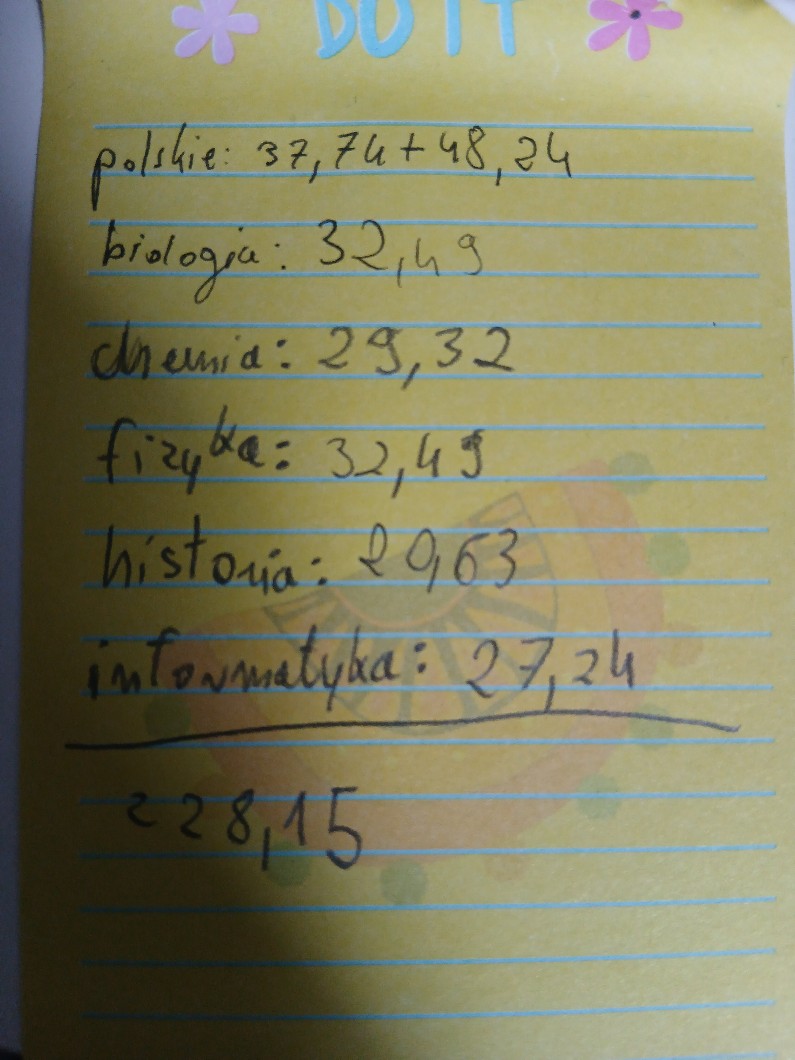 DO IT
polskie: 37,74 + 48,24
biologia: 32,49
chemia: 29,32
fizyka: 32,49
historia: 20,63
informatyka: 27,24
228,15